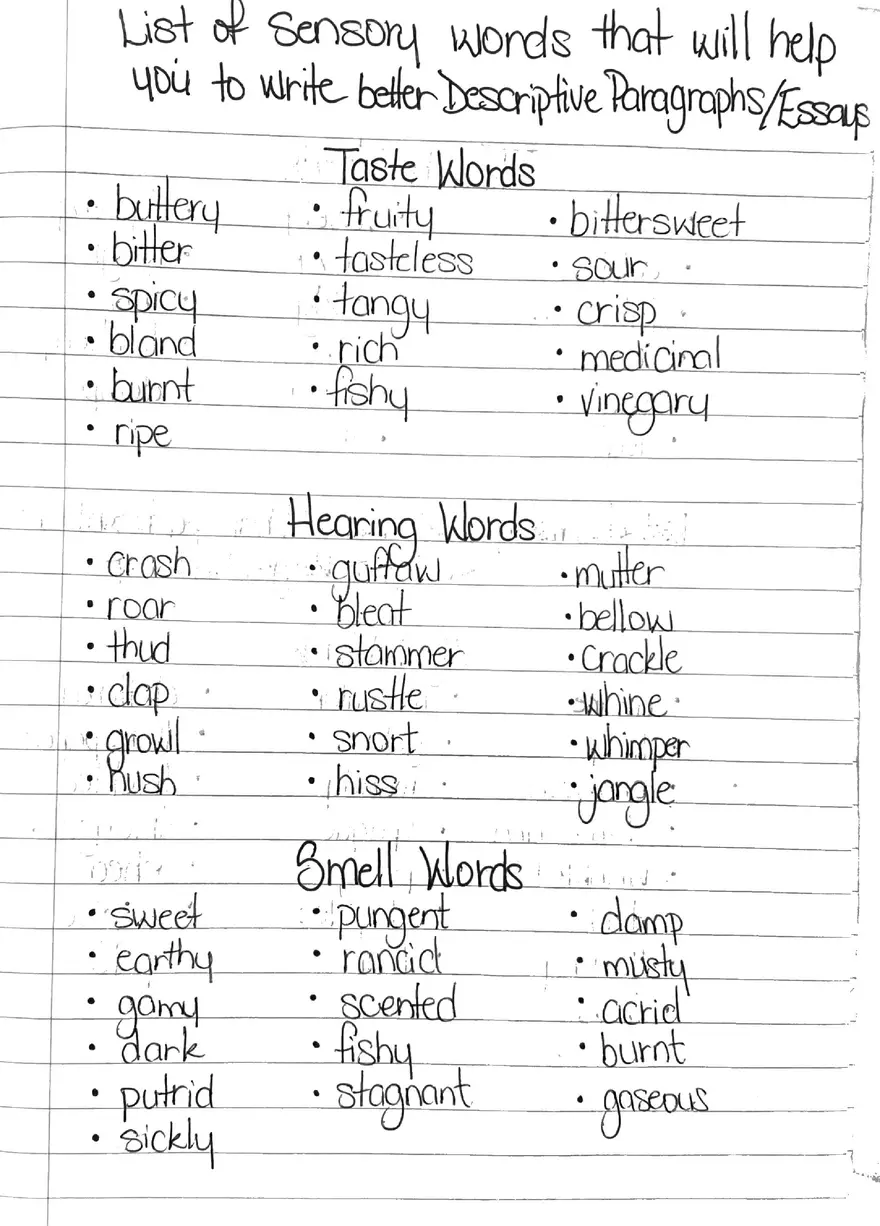 List of Sensory words that will help
you to write better Descriptive Paragraphs/Essays
Taste Words
• buttery • fruity • bittersweet
• bitter • tasteless • sour
• spicy • tangy • crisp
• bland • rich • medicinal
• burnt • fishy • vinegary
• ripe
Hearing Words
• crash • guffaw • mutter
• roar • bleat • bellow
• thud • stammer • crackle
• clap • rustle • whine
• growl • snort • whimper
• hush • hiss • jangle
Smell Words
• sweet • pungent • damp
• earthy • rancid • musty
• gamy • scented • acrid
• dark • fishy • burnt
• putrid • stagnant • gaseous
• sickly